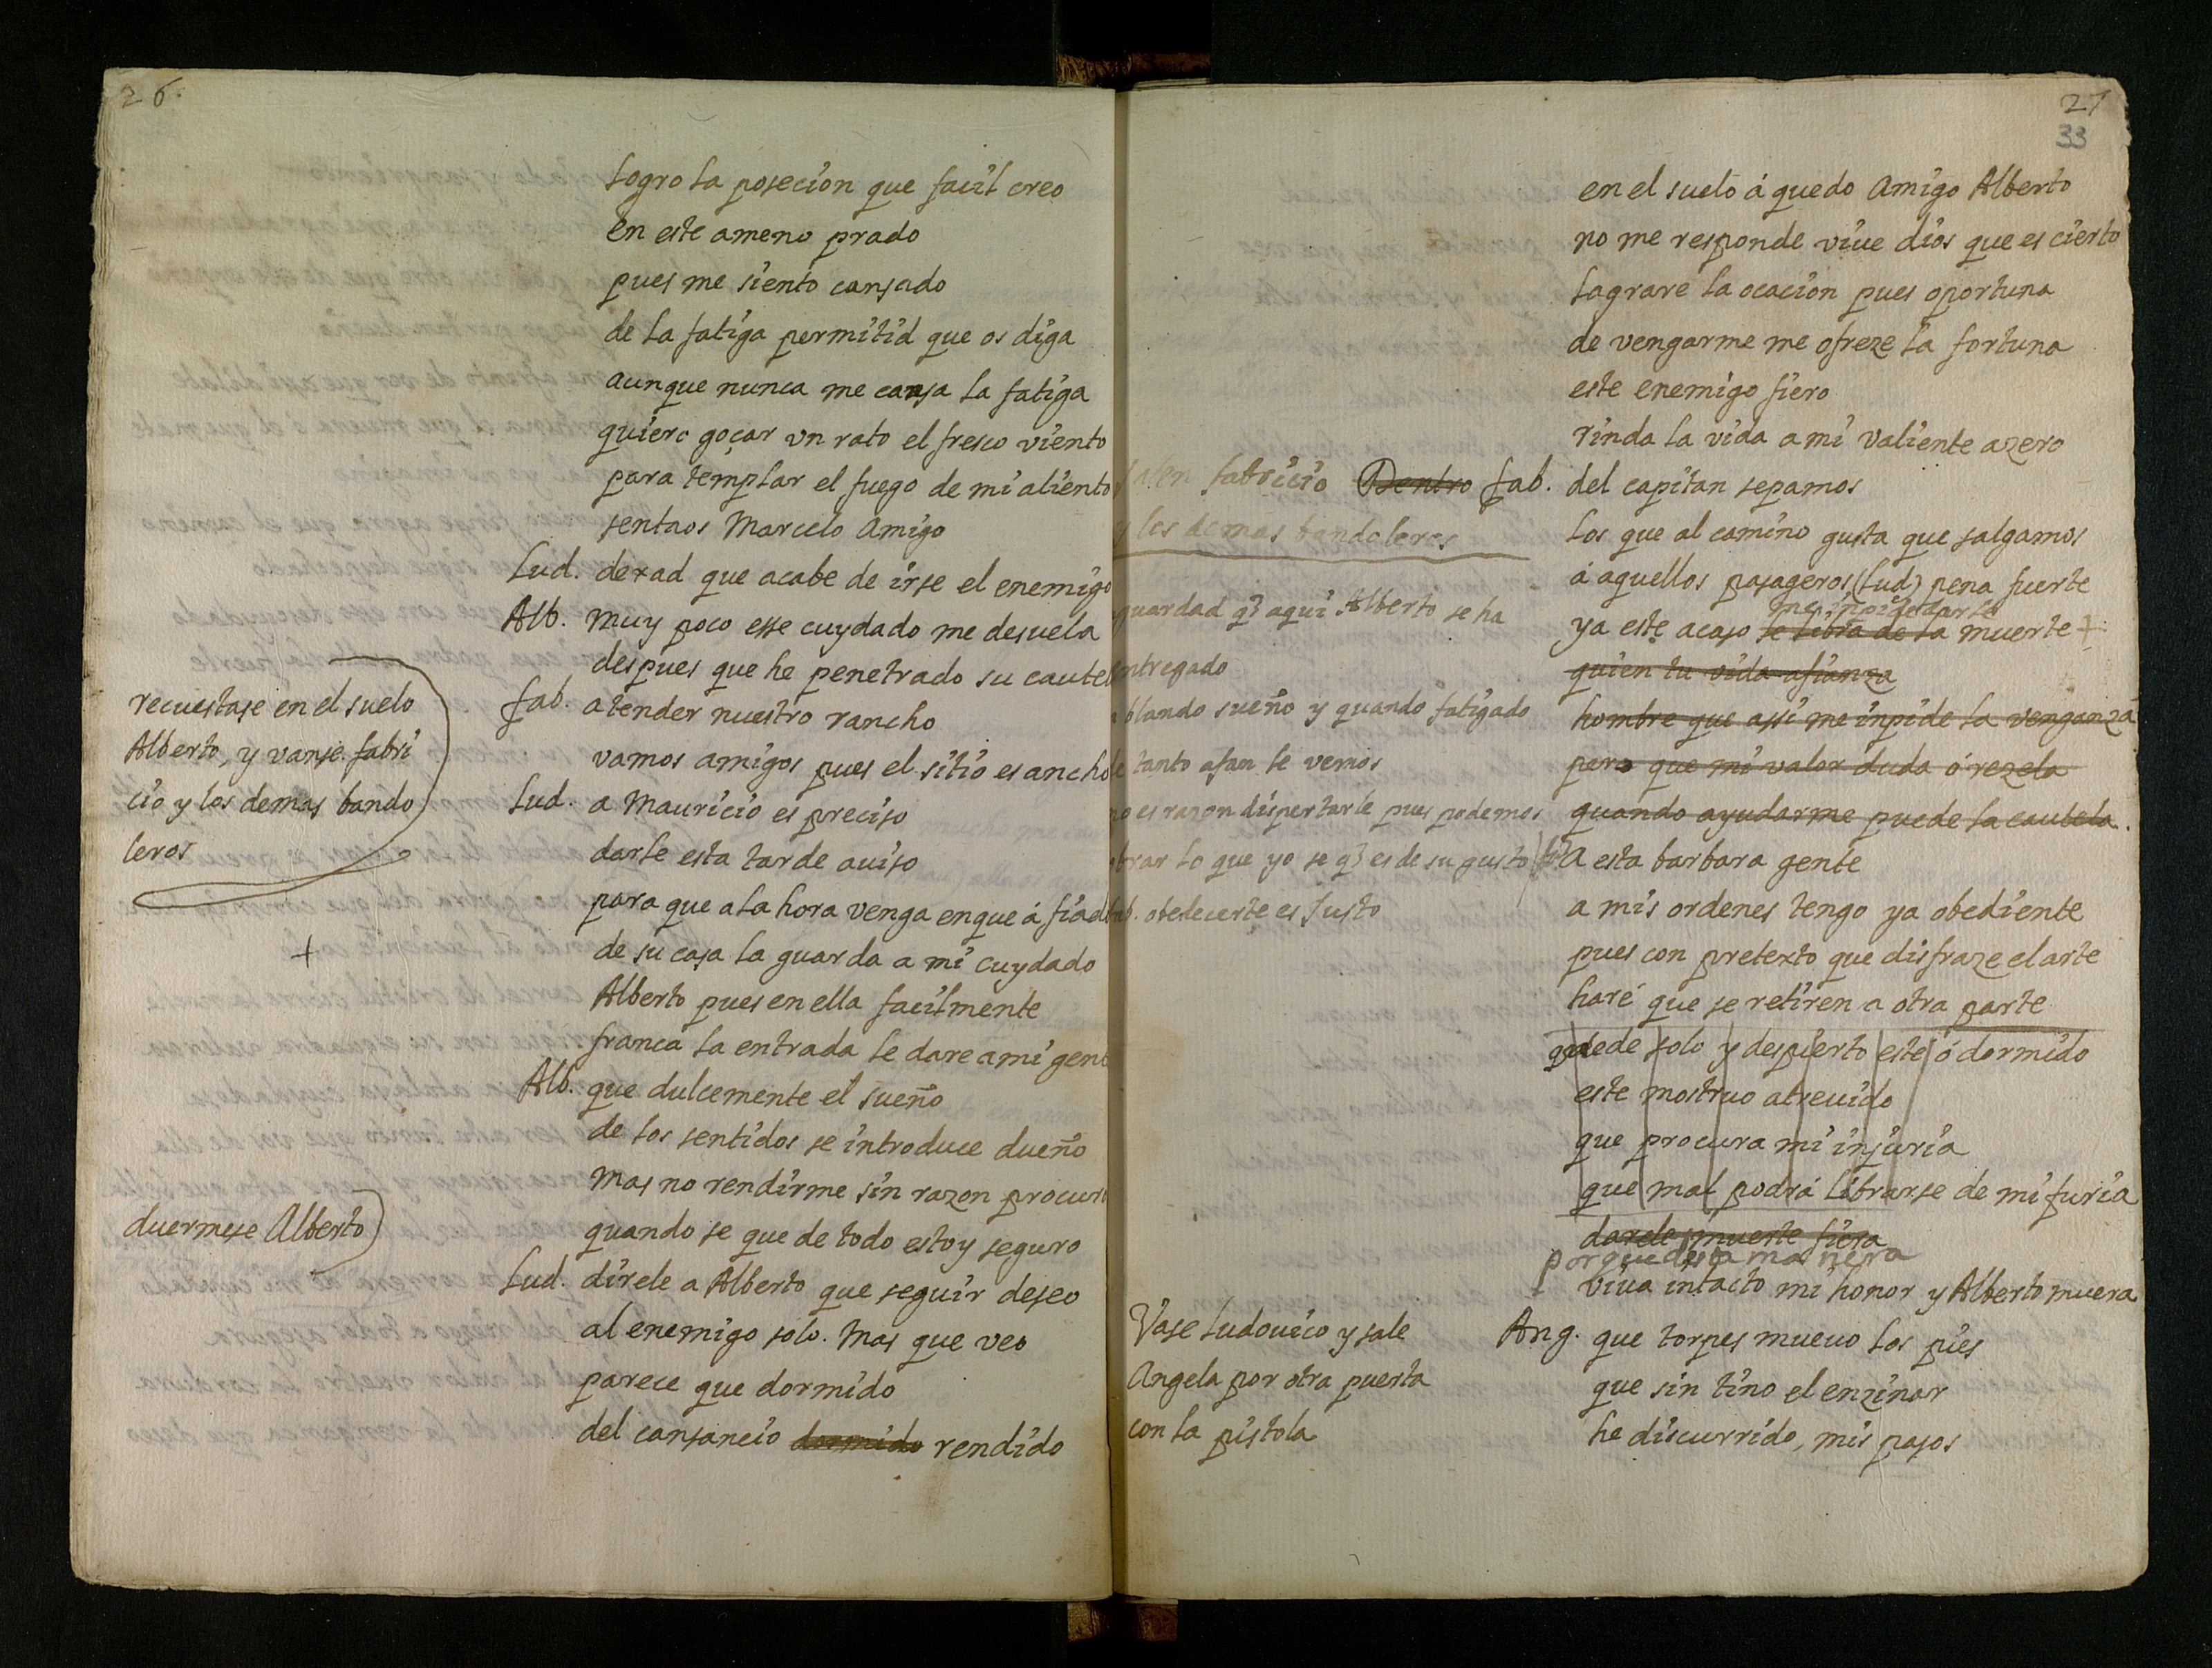 26.
logro la poseçion que facil creo
en este ameno prado
pues me siento cansado
de la fatiga permitid que os diga
aunque nunca me cansa la fatiga
quiero goçar vn rato el fresco viento
para templar el fuego de mi aliento
sentaos Marcelo Amigo
Lud. dexad que acabe de irse el enemigo
Alb. muy poco esse cuydado me desuela
despues que he penetrado su cautel
recuestase en el suelo
Alberto, y vanse fabri
cio y los demas bando
leros
fab. atender nuestro rancho
vamos amigos pues el sitio es ancho
Lud. a Mauricio es preciso
darle esta tarde auiso
para que a la hora venga en que á fiad
+
de su casa la guarda a mi cuydado
Alberto pues en ella facilmente
franca la entrada le dare a mi gent
Alb. que dulcemente el sueño
de los sentidos se introduce dueño
mas no rendirme sin razon procuro
duermese Alberto
quando se que de todo estoy seguro
Lud. direle a Alberto que seguir deseo
al enemigo solo. Mas que veo
parece que dormido
del cansancio dormido rendido
27
33
en el suelo á quedo Amigo Alberto
no me responde viue dios que es cierto
lagrare la ocacion pues oportuna
de vengarme me ofreze la fortuna
este enemigo fiero
rinda la vida a mi valiente azero
salen fabricio Dentro fab. del capitan sepamos
y los demas bandoleros
los que al camino gusta que salgamos
á aquellos pasageros (Lud) pena fuerte
me inpide darle
ya este acaso se libra de la muerte +
guardad q̃ aqui Alberto se ha
entregado
blando sueño y quando fatigado
de tanto afan le vemos
no es razon dispertarle pues podemos
obrar lo que yo se q̃ es de su gusto
fab. obedecerte es justo
quien tu vida afianza
hombre que assi me inpide la venganza
pero que mi valor duda ó rezela
quando ayudarme puede la cautela.
A esta barbara gente
a mis ordenes tengo ya obediente
pues con pretexto que disfraze el arte
haré que se retiren a otra parte
quede solo y despierto este ó dormido
este mostruo atreuido
que procura mi injuria
que mal podrá librarse de mi furia
darele muerte fiera
porque desta manera
viua intacto mi honor y Alberto muera
Vase Ludouico y sale
Angela por otra puerta
con la pistola
Ang. que torpes mueuo los pies
que sin tino el enzinar
he discurrido, mis pasos